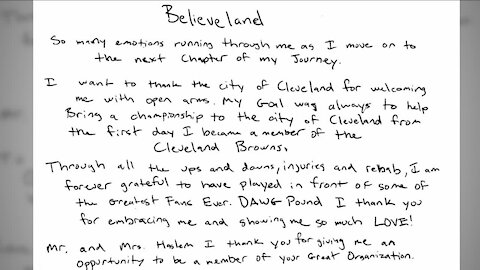 Believeland
So many emotions running through me as I move on to
the next Chapter of my Journey.
I want to thank the city of Cleveland for welcoming
me with open arms. My Goal was always to help
Bring a championship to the city of Cleveland from
the first day I became a member of the
Cleveland Browns.
Through all the ups and downs, injuries and rehab, I am
forever grateful to have played in front of some of
the Greatest Fans Ever. DAWG Pound I thank you
for embracing me and showing me so much LOVE!
Mr. and Mrs. Haslem I thank you for giving me an
Opportunity to be a member of your Great Organization.